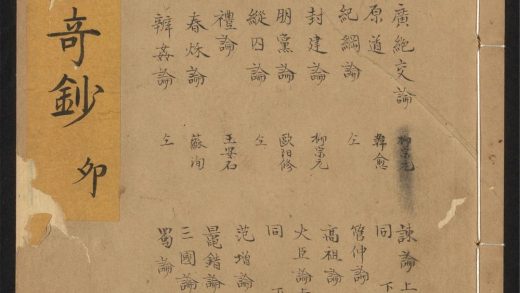 廣絶交論 柳宗元
原道 韓愈
紀綱論 仝
封建論 柳宗元
朋黨論 歐阳修
縱囚論 仝
禮論 王安石
春秌論 蘇洵
辨姦論 仝
諫論上
同 下
管仲論
高祖論
大臣論上
同 下
范增論
鼂錯論
三國論
蜀論
奇鈔 卯